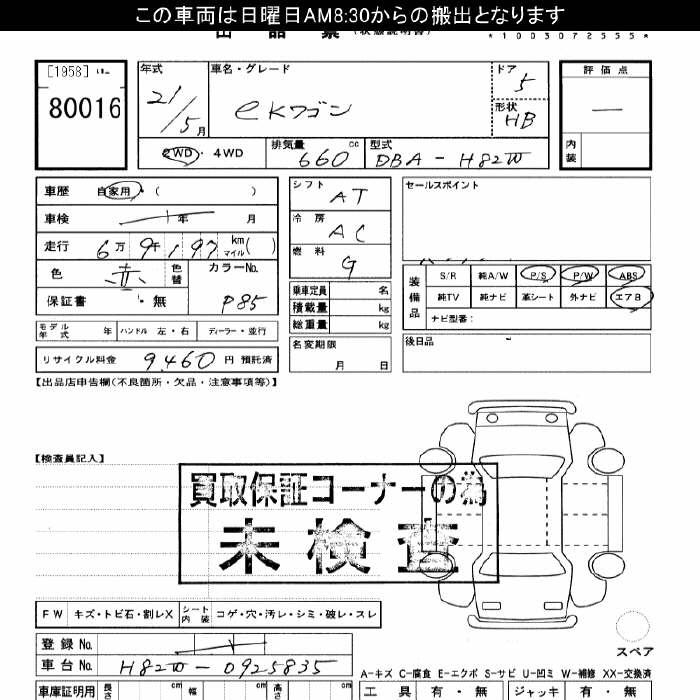 この車両は日曜日AM8:30からの搬出となります
出品票 (状態説明書)
*1003072555*
[1958]
80016
年式
21/5月
車名・グレード
eKワゴン
ドア
5
形状
HB
評価点
—
内装
2WD・4WD
排気量
660 cc
型式
DBA-H82W
車歴 自家用・( )
車検 年 月
走行 6万9千197 km マイル( )
色 赤 色替
カラーNo. P85
保証書 ・無
シフト AT
冷房 AC
燃料 G
乗車定員 名
積載量 kg
総重量 kg
セールスポイント
装備品
S/R 純A/W P/S P/W ABS
純TV 純ナビ 革シート 外ナビ エアB
ナビ型番:
モデル年式 年 ハンドル 左・右 ディーラー・並行
リサイクル料金 9,460 円 預託済
名変期限
月 日
後日品
【出品店申告欄(不良箇所・欠品・注意事項等)】
【検査員記入】
買取保証コーナーの為
未検査
FW キズ・トビ石・割レX シート内装 コゲ・穴・汚レ・シミ・破レ・スレ
スペア
登録No.
車台No. H82W-0925835
A-キズ C-腐食 E-エクボ S-サビ U-凹ミ W-補修 XX-交換済
車庫証明用 長さ cm 幅 cm 高さ cm
工具 有・無 ジャッキ 有・無